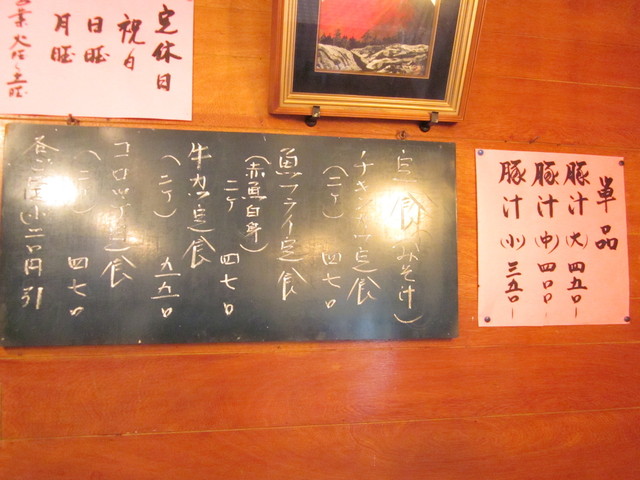 単品
豚汁(大)四九〇ー
豚汁(中)四〇〇ー
豚汁(小)三五〇ー
定食(みそ汁)
チキンカツ定食
(二ケ)四七〇
魚フライ定食
(赤魚白身)
二ケ 四七〇
牛カツ定食
(二ケ)九五〇
コロッケ定食
(二ケ)四七〇
定休日
祝日
日曜
月曜